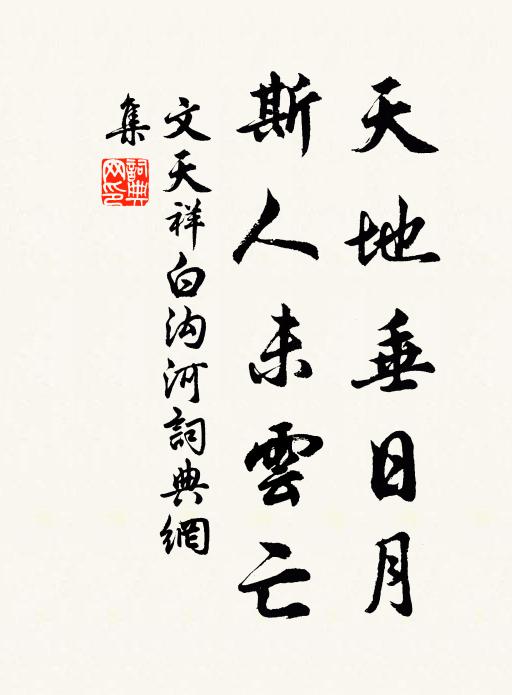 天地垂日月
斯人未雲亡
文天祥白沟河詞典網
集
詞典
网印